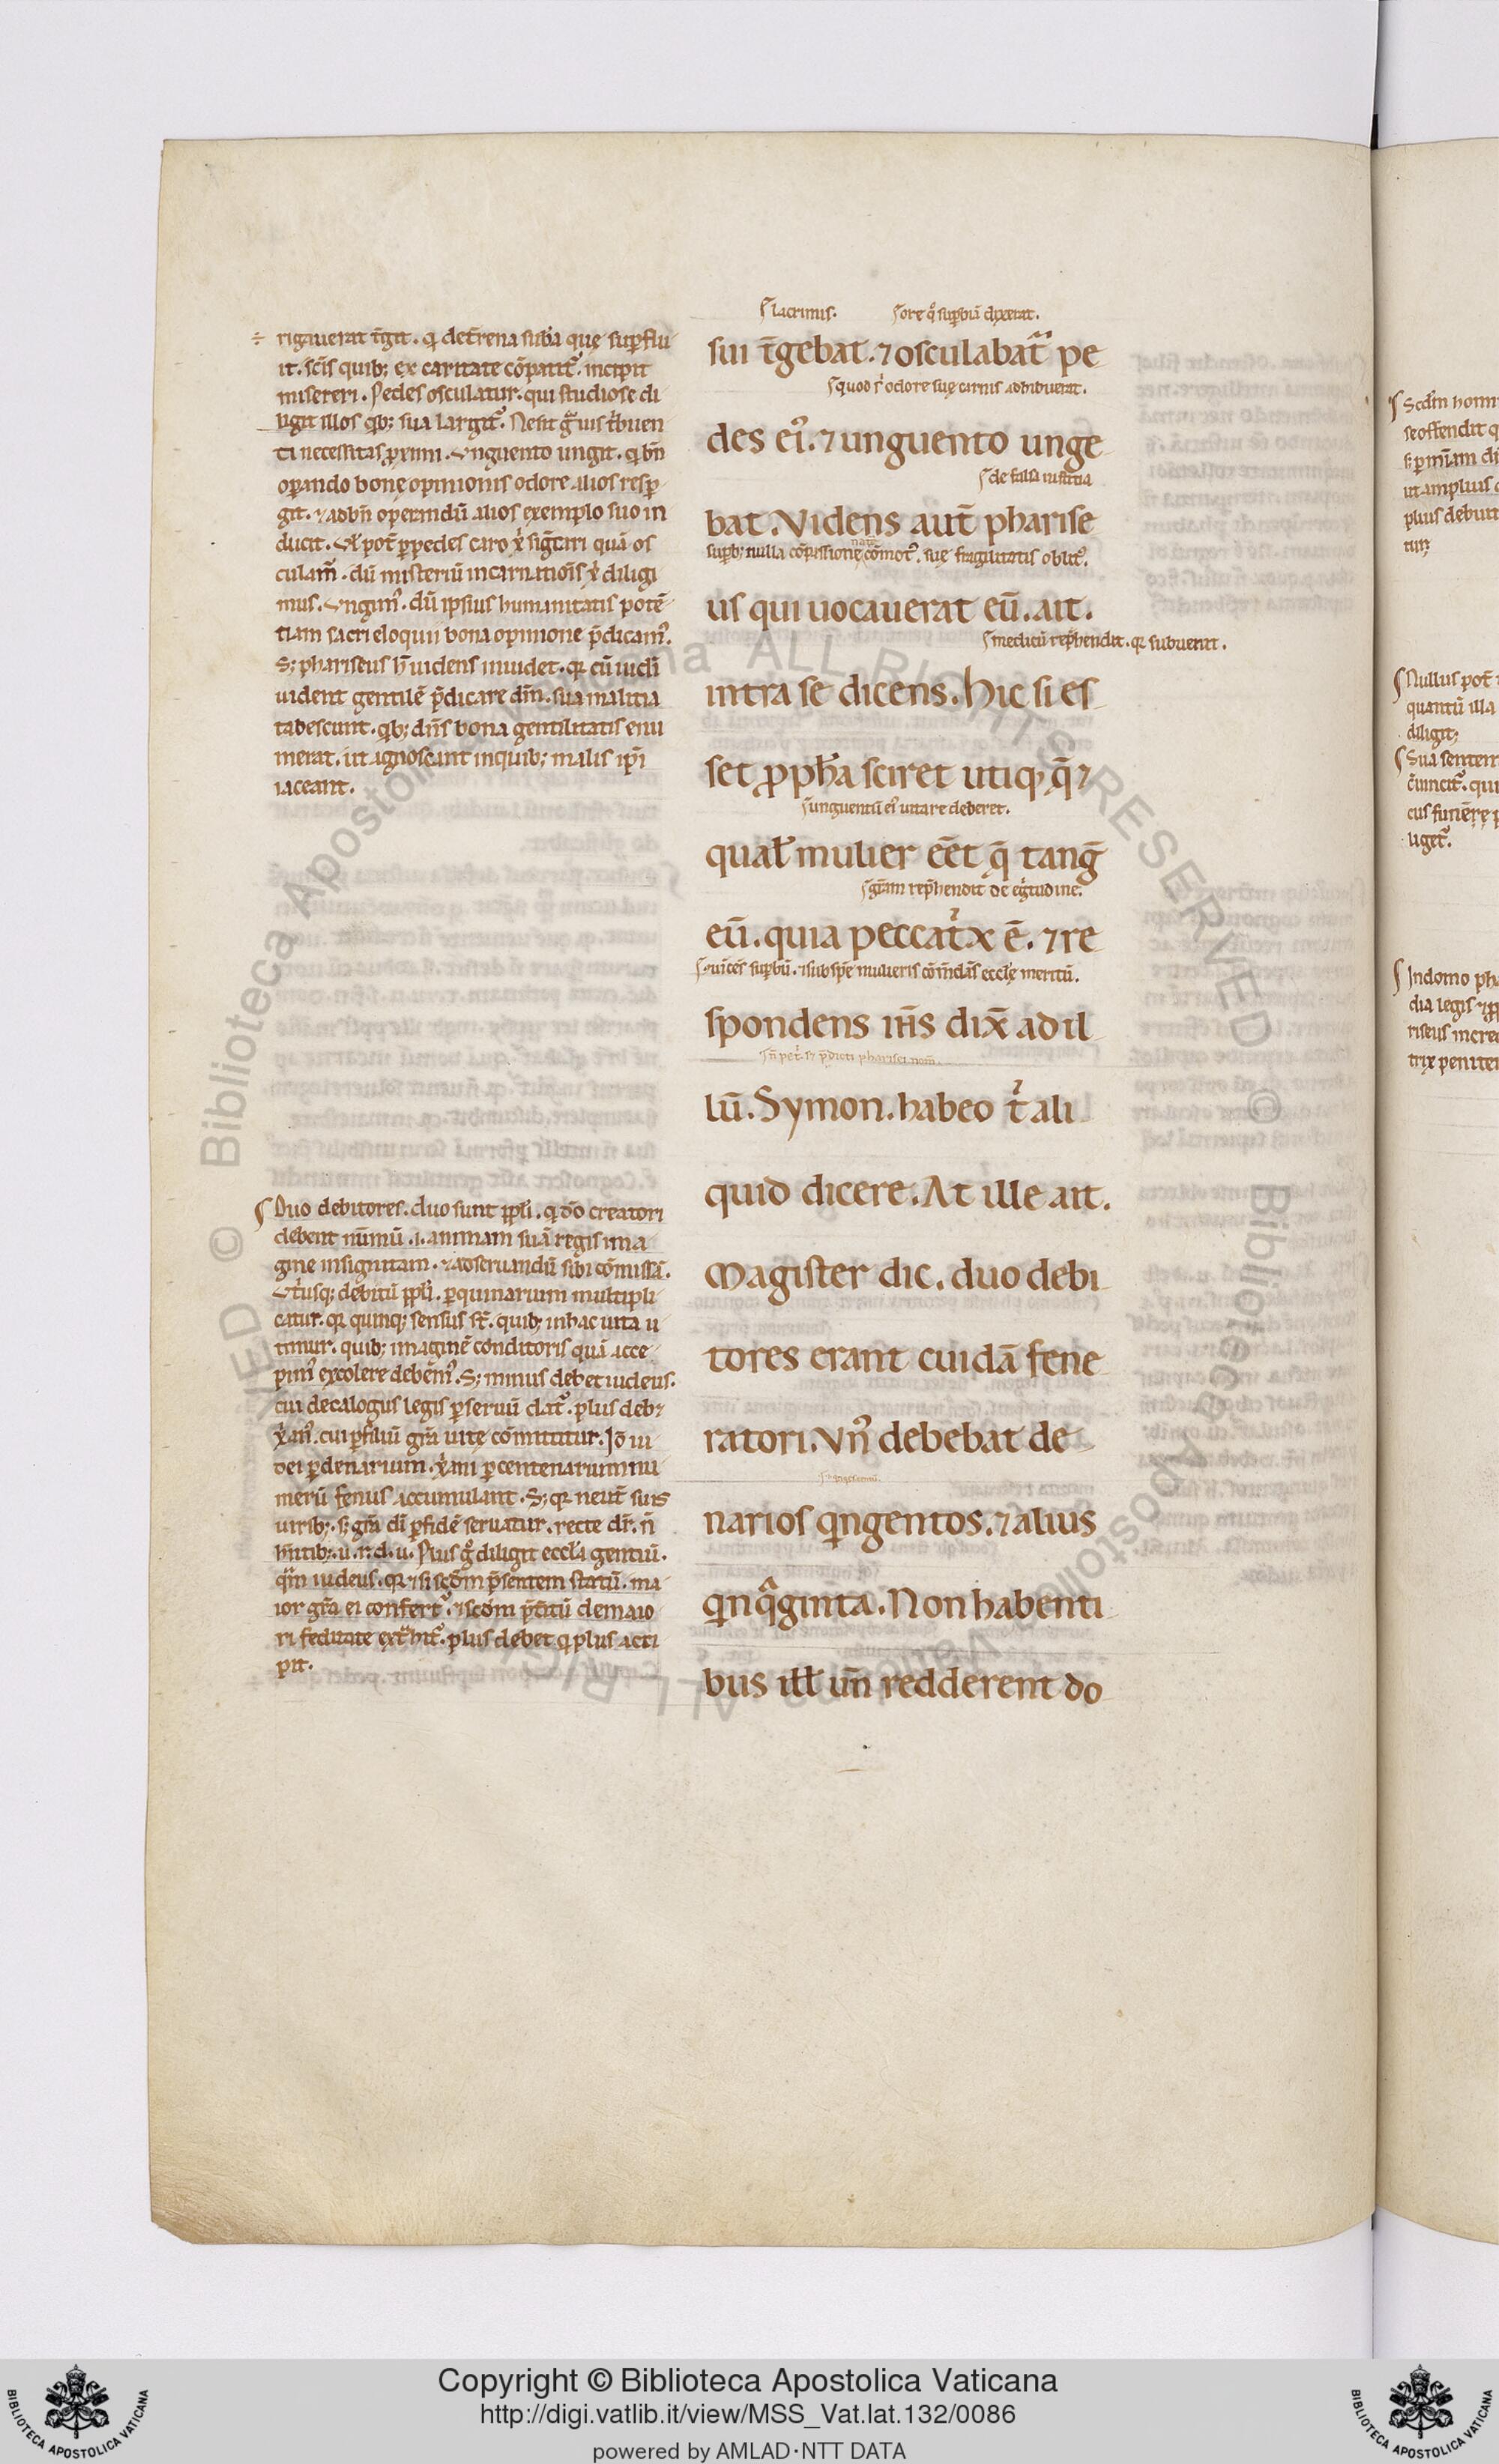 ÷ rigauerat t̄git. q̇ det̄rena sub̄a quę sup̄flu
it. sc̄is quib; ex caritate cōpatit᷒. incipit
misereri. Pedes osculatur. qui studiose di
ligit illos q̇b; sua largit᷒. Ne sit gͣuis t̍buen
ti necessitas p̲ximi. Vnguento ungit. q̇ bn̄
op̲ando bonę opinionis odore alios resp̲
git. ⁊ ad bn̄ operandū alios exemplo suo in
ducit. Vl̓ pot̄ p̲ pedes caro x̍ sig̓ticari quā os
culam̄. dū misteriū incarnatiōis x̍ diligi
mus. Vngim᷒. dū ipsius humanitatis potē
tiam sacri eloquii bona opinione p̄dicam᷒.
S; phariseus h̓ uidens inuidet. qꝛ cū iudei
uident gentilē p̄dicare dm̄. sua malitia
tabescunt. q̇b; dn̄s bona gentilitatis enu
merat. ut agnoscant in quib; malis ip̄i
iaceant.
Duo debitores. duo sunt pp̄li. q̇ dō creatori
debent nūmū .i. animam suā regis ima
gine insignitam. ⁊ adseruandū sibi cōmissā.
Vt̍usq; debitū pp̄li. p̲ quinarium multipli
catur. qꝛ quinq; sensus st̄. quib; in hac uita u
timur. quib; imaginē conditoris quā acce
pim᷒ excolere debem᷒. S; minus debet iudeus.
cui decalogus legis p̲ seruū dat᷒. plus deb⁊
x̍an᷒. cui p̲ filiū gr̄a uite cōmittitur. Iō iu
dei p̲ denarium. x̍ani p̲ centenarium nu
merū fenus accumulant. S; qꝛ neut̄ suis
uirib;. s; gr̄a dī p̲ fidē seruatur. recte dr̄. n̄
hn̄tib;. u. r. d. u. Plus g̓ diligit eccl̓a gentiū.
qͣm iudeus. qꝛ ⁊ si scd̄m p̄sentem statū. ma
ior gr̄a ei confert᷒. ⁊ scd̄m p̄titū de maio
ri feditate ext̍hit᷒. plus debet q̇ plus acci
pit.
lacrimis. ore q̊ sup̲biū dixerat.
sui t̄gebat. ⁊ osculabatͬ pe
quod p̍ odore suę carnis adhibuerat.
des ei᷒. ⁊ unguento unge
de falsa iustitia
bat. Videns aut̄ pharise
sup̲b; nulla cōpassionę cōmot᷒. suę fragilitatis oblit᷒.
us qui uocauerat eū. ait.
medicū rep̄hendit. qꝛ subuenit.
intra se dicens. Hic si es
set p̲ph̄a sciret utiq; q̄ ⁊
unguentū ei᷒ uitare deberet.
qual̓ mulier eēt q̄ tang̓
ęgram rep̄hendit de ęg̍tudine.
eū. quia peccat̍x ē. ⁊ re
uices sup̲bū. ⁊ sub spē mulieris cōm̄dās eccl̓ę meritū.
spondens ih̄s dix̄ ad il
n̄ pet̍ s; p̄dicti pharisei nom̄.
lū. Symon. habeo t̍ ali
quid dicere. At ille ait.
Magister dic. duo debi
tores erant cuidā fene
ratori. Vn᷒ debebat de
narios qͥngentos. ⁊ alius
qͥnqͣginta. Non habenti
bus ill̓ un̄ redderent do
Copyright © Biblioteca Apostolica Vaticana
http://digi.vatlib.it/view/MSS_Vat.lat.132/0086
powered by AMLAD·NTT DATA